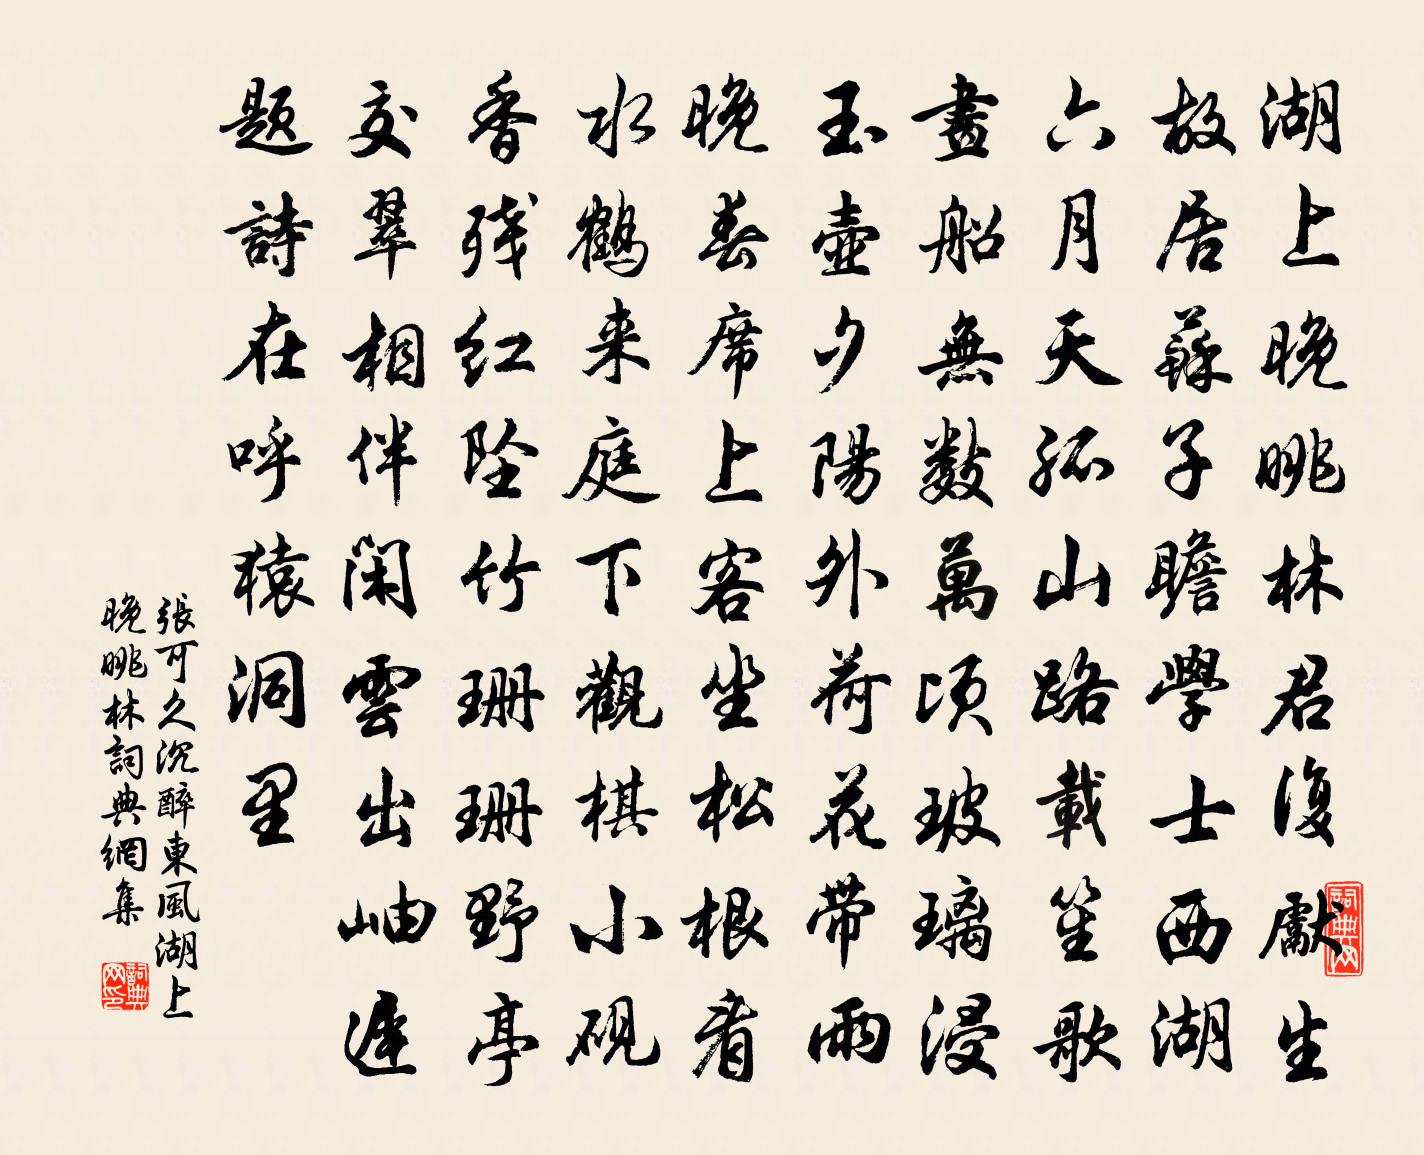 湖上晚眺林君復獻生
故居蘇子瞻學士西湖
六月天孤山路載笙歌
畫船無數萬頃玻璃浸
玉壺夕陽外荷花帶雨
晚春席上客坐松根看
水鶴来庭下觀棋小硯
香殘红墜竹珊珊野亭
交翠相伴閑雲出岫遲
题詩在呼猿洞里
張可久沉醉東風湖上
晚眺林詞典網集
詞典网
詞典网印